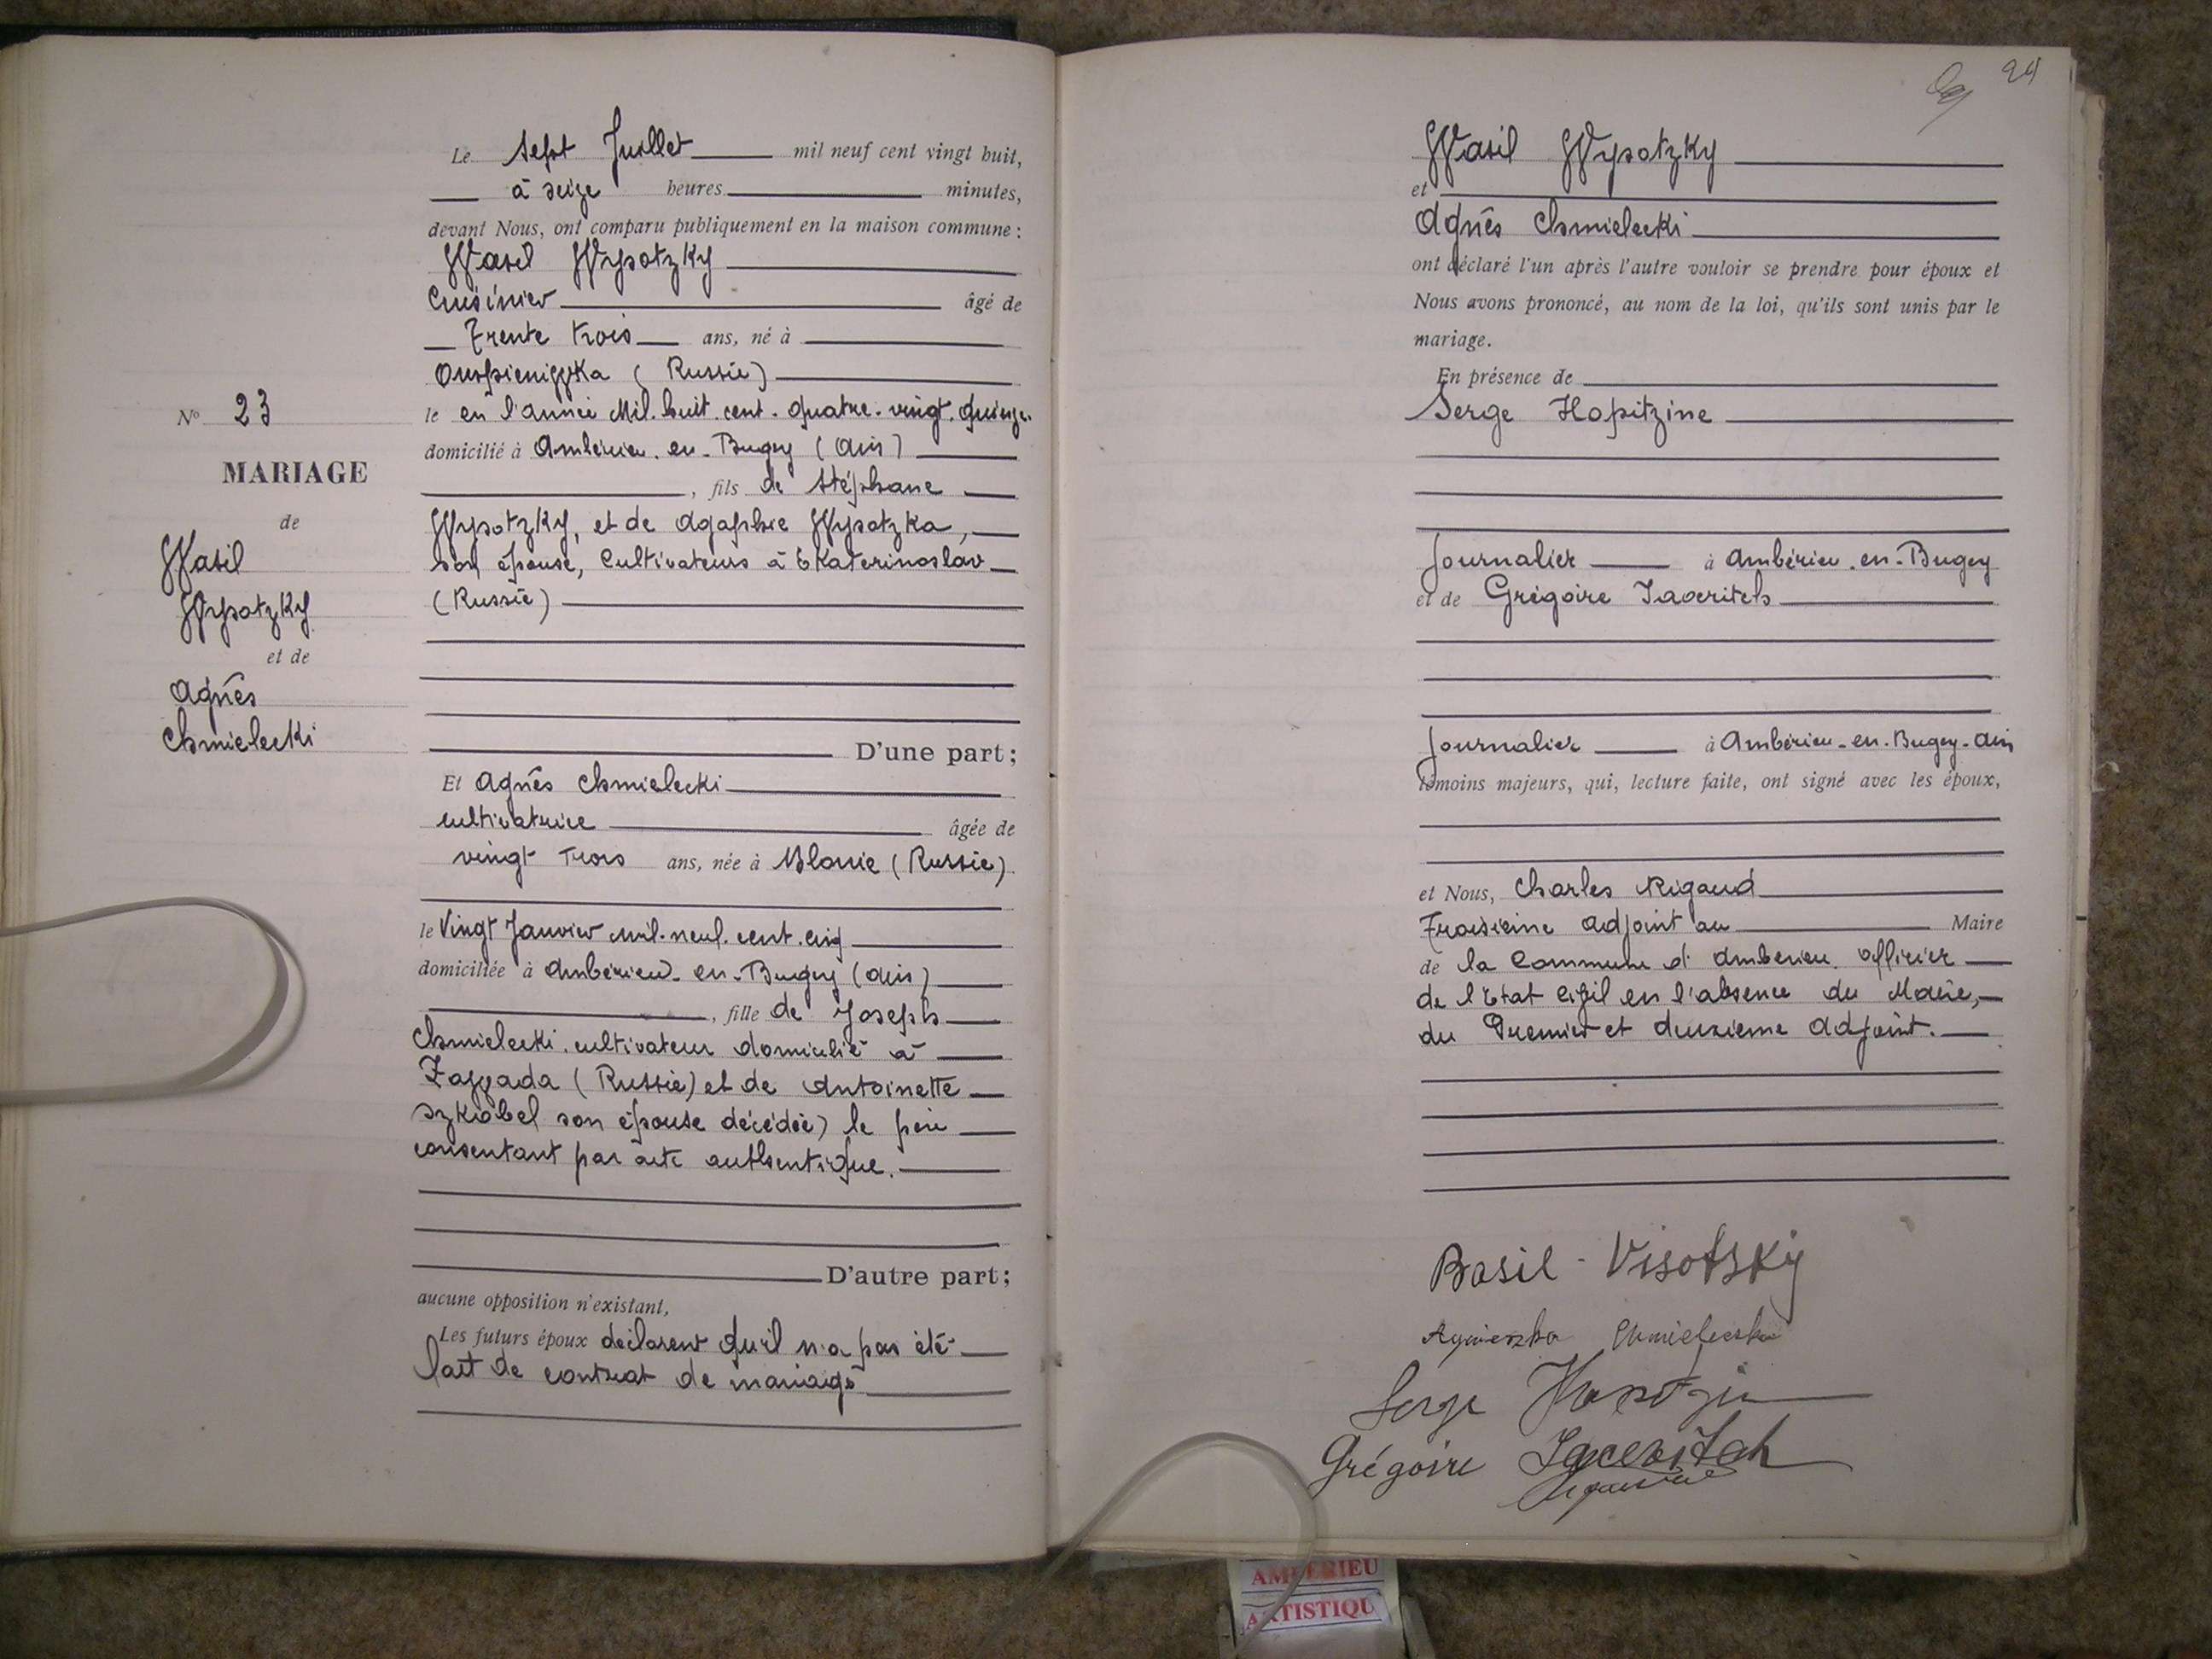 N° 23
MARIAGE
de
Wasil
Wysotzky
et de
Agnès
Chmielecki
Le sept Juillet mil neuf cent vingt huit,
à seize heures minutes,
devant Nous, ont comparu publiquement en la maison commune :
Wasil Wysotzky
Cuisinier âgé de
Trente trois ans, né à
(Russie)
le en l'année Mil. huit. cent. quatre. vingt. quinze.
domicilié à Ambérieu. en. Bugey (Ain)
, fils de Stéphane
Wysotzky, et de Agaphie Wysotzka,
son épouse, Cultivateurs à Ekaterinoslav
(Russie)
D'une part ;
Et Agnès Chmielecki
cultivatrice âgée de
vingt trois ans, née à (Russie)
le Vingt Janvier mil. neuf. cent. cinq
domiciliée à Ambérieu. en. Bugey (Ain)
, fille de Joseph
Chmielecki. cultivateur domicilié à
(Russie) et de Antoinette
Szkobel son épouse décédée) le père
consentant par acte authentique.
D'autre part ;
aucune opposition n'existant,
Les futurs époux déclarent qu'il n'a pas été
fait de contrat de mariage
24
Wasil Wysotzky
et
Agnès Chmielecki
ont déclaré l'un après l'autre vouloir se prendre pour époux et
Nous avons prononcé, au nom de la loi, qu'ils sont unis par le
mariage.
En présence de
Serge Hopitzine
Journalier à Ambérieu. en. Bugey
et de Grégoire
Journalier à Ambérieu. en. Bugey. Ain
témoins majeurs, qui, lecture faite, ont signé avec les époux,
et Nous, Charles Rigaud
Troisième adjoint au Maire
de la Commune d'Amberieu. officier
de l'Etat Civil en l'absence du Maire,
du Premier et deuxième Adjoint.
Basil - Visotsky
Agnieszka Chmielecka
Serge
Grégoire
AMBERIEU
ARTISTIQU